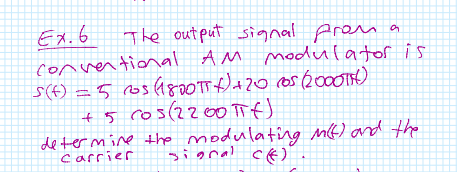 Ex.6 The output signal from a
conventional AM modulator is
s(t) = 5 cos(1800πt)+20 cos(2000πt)
+ 5 cos(2200πt)
determine the modulating m(t) and the
carrier signal c(t).